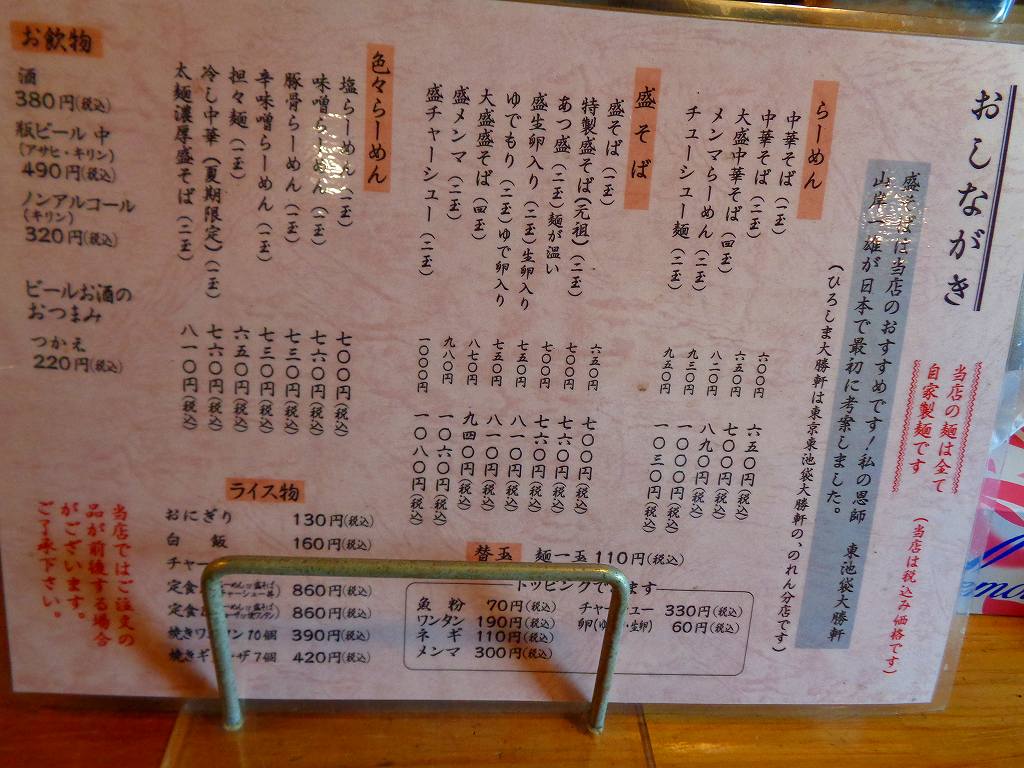 おしながき
当店の麺は全て
自家製麺です
(当店は税込み価格です)
盛そばは当店のおすすめです！私の恩師 東池袋大勝軒
山岸一雄が日本で最初に考案しました。
(ひろしま大勝軒は東京東池袋大勝軒の、のれん分店です)
らーめん
中華そば 六〇〇円 六五〇円(税込)
中華そば(二玉) 六五〇円 七〇〇円(税込)
大盛中華そば(四玉) 八二〇円 八九〇円(税込)
メンマらーめん(二玉) 九三〇円 一〇〇〇円(税込)
チューシュー麺(二玉) 九五〇円 一〇三〇円(税込)
盛そば
盛そば(二玉) 六五〇円 七〇〇円(税込)
特製盛そば(元祖)(二玉) 七〇〇円 七六〇円(税込)
あつ盛(二玉)麺が温い 七〇〇円 七六〇円(税込)
盛生卵入り(二玉)生卵入り 七五〇円 八一〇円(税込)
ゆでもり(二玉)ゆで卵入り 七五〇円 八一〇円(税込)
大盛盛そば(四玉) 八七〇円 九四〇円(税込)
盛メンマ(二玉) 九八〇円 一〇六〇円(税込)
盛チャーシュー(二玉) 一〇〇〇円 一〇八〇円(税込)
色々らーめん
塩らーめん(二玉) 七〇〇円(税込)
味噌らーめん(二玉) 七六〇円(税込)
豚骨らーめん(二玉) 七三〇円(税込)
辛味噌らーめん(二玉) 七三〇円(税込)
担々麺(二玉) 六五〇円(税込)
冷し中華(夏期限定)(二玉) 七六〇円(税込)
太麺濃厚盛そば(二玉) 八一〇円(税込)
お飲物
酒
380円(税込)
瓶ビール 中
(アサヒ・キリン)
490円(税込)
ノンアルコール
(キリン)
320円(税込)
ビールお酒の
おつまみ
つかえ
220円(税込)
替玉 麺一玉 110円(税込)
トッピングで ます
魚粉 70円(税込)
ワンタン 190円(税込)
ネギ 110円(税込)
メンマ 300円(税込)
チャー ュー 330円(税込)
卵(ゆ ・生卵) 60円(税込)
ライス物
おにぎり 130円(税込)
白飯 160円(税込)
チャー
定食 860円(税込)
定食 860円(税込)
焼きワ タン10個 390円(税込)
焼きギ ーザ7個 420円(税込)
当店ではご注文の
品が前後する場合
がございます。
ご了承下さい。